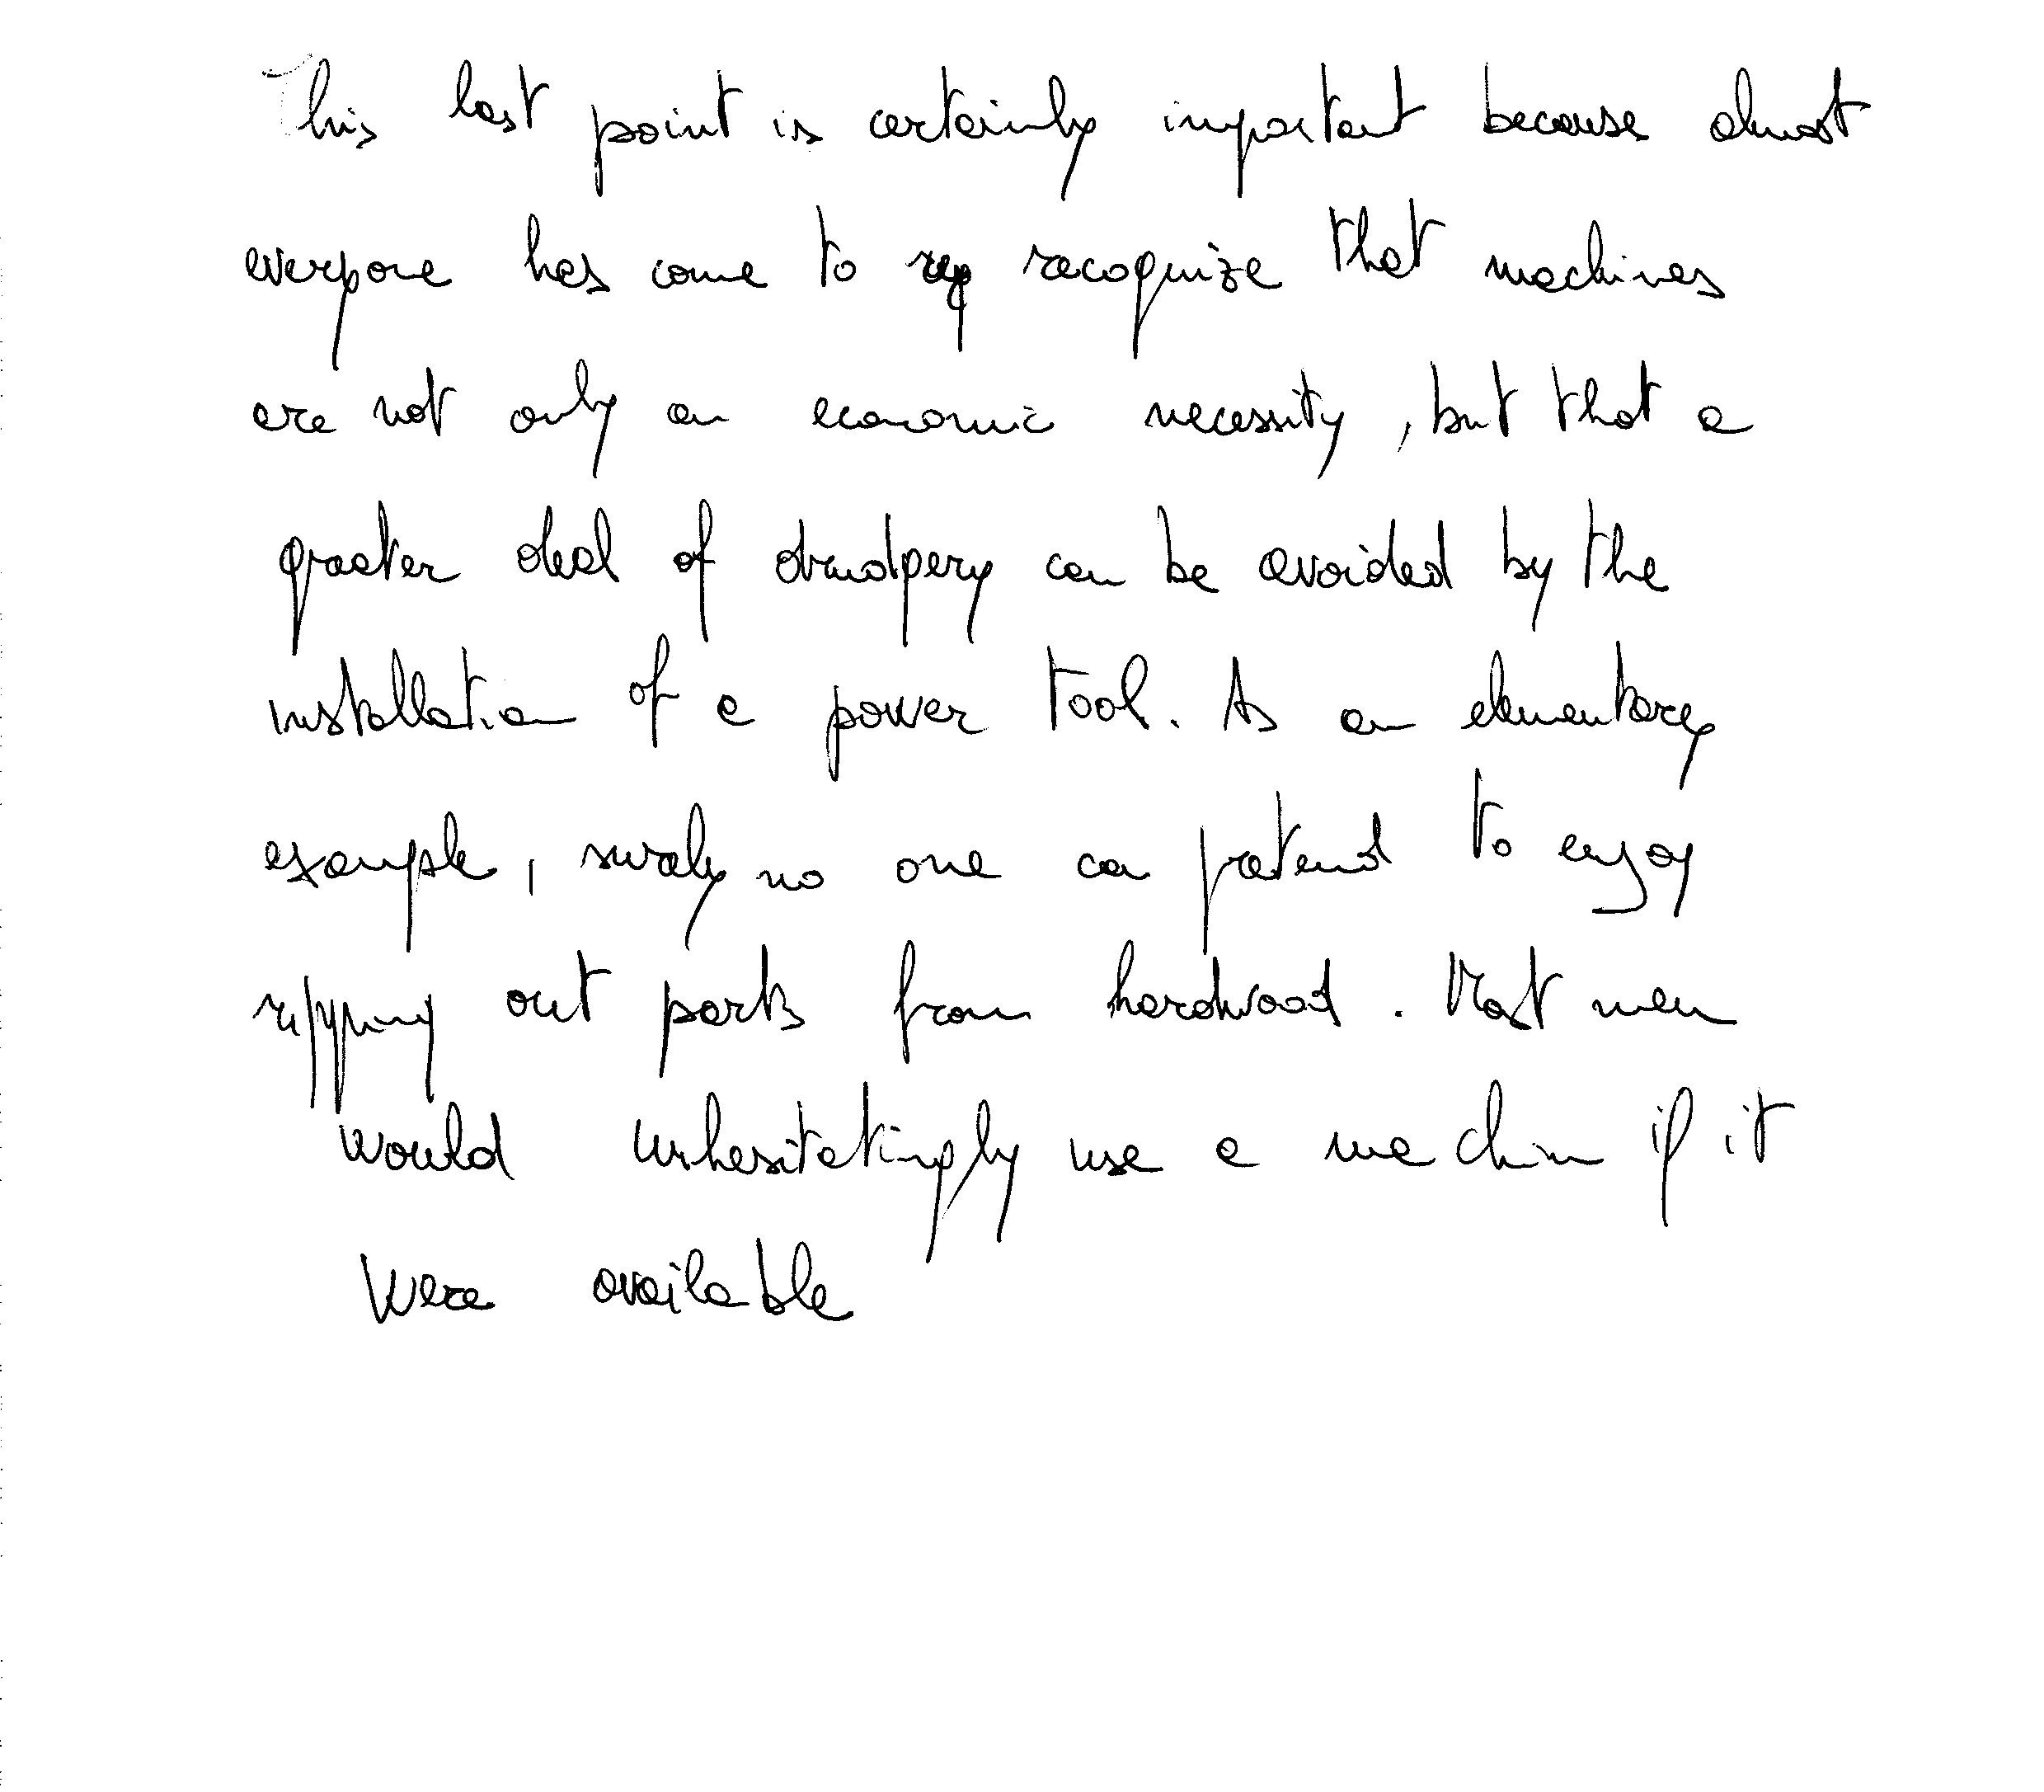 This last point is certainly important because almost
everyone has come to reg recognize that machines
are not only an economic necessity, but that a
greater deal of drudgery can be avoided by the
installation of a power tool. As an elementary
example, surely no one can pretend to enjoy
ripping out parts from hardwood. Most men
would unhesitatingly use a machine if it
were available